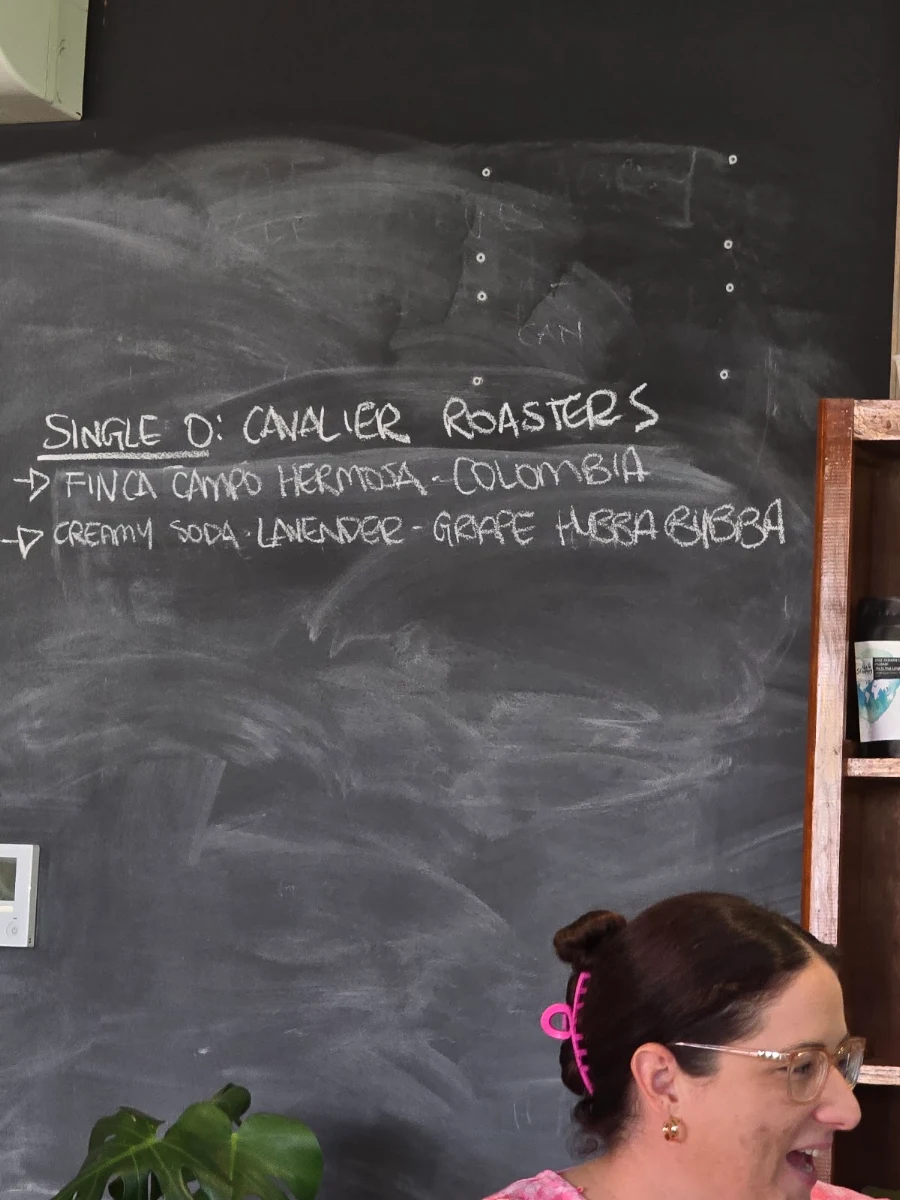 CAN
SINGLE O: CAVALIER ROASTERS
→ FINCA CAMPO HERMOSA - COLOMBIA
→ CREAMY SODA · LAVENDER - GRAPE HUBBA BUBBA